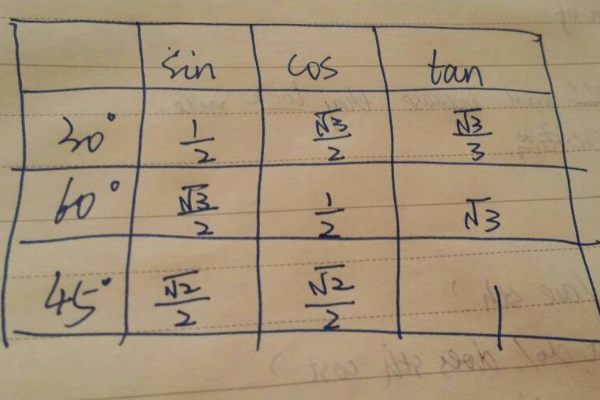 sin cos tan
30° 1/2 √3/2 √3/3
60° √3/2 1/2 √3
45° √2/2 √2/2 1